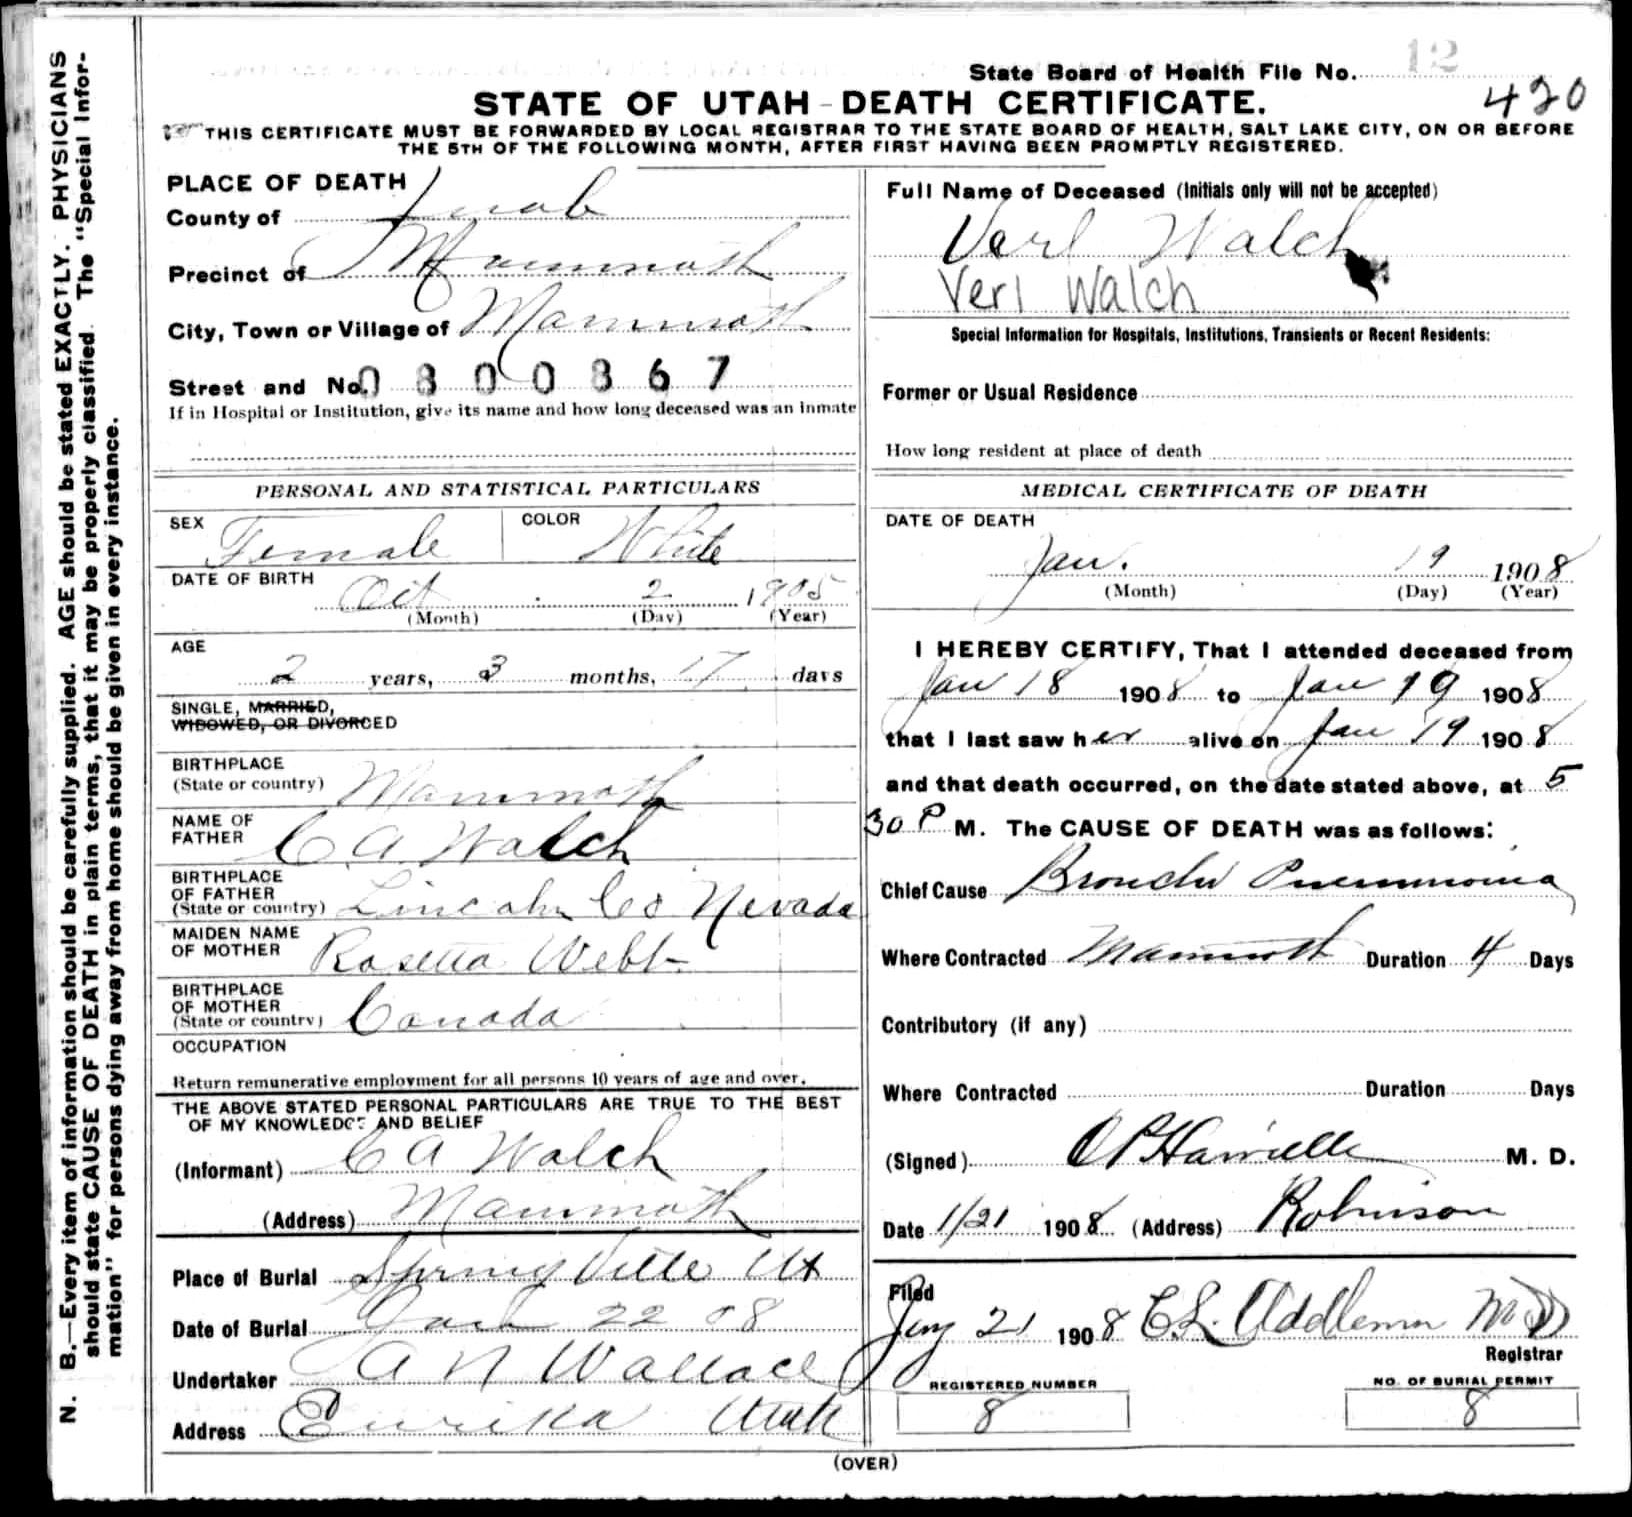 State Board of Health File No. 12
420
STATE OF UTAH - DEATH CERTIFICATE.
THIS CERTIFICATE MUST BE FORWARDED BY LOCAL REGISTRAR TO THE STATE BOARD OF HEALTH, SALT LAKE CITY, ON OR BEFORE
THE 5TH OF THE FOLLOWING MONTH, AFTER FIRST HAVING BEEN PROMPTLY REGISTERED.
N. B.—Every item of information should be carefully supplied. AGE should be stated EXACTLY. PHYSICIANS
should state CAUSE OF DEATH in plain terms, that it may be properly classified. The "Special Infor-
mation" for persons dying away from home should be given in every instance.
PLACE OF DEATH
County of Juab
Precinct of Mammoth
City, Town or Village of Mammoth
Street and No. 0300367
If in Hospital or Institution, give its name and how long deceased was an inmate
PERSONAL AND STATISTICAL PARTICULARS
SEX Female COLOR White
DATE OF BIRTH
Oct 2 1905
(Month) (Day) (Year)
AGE
2 years, 3 months, 17 days
SINGLE, MARRIED,
WIDOWED, OR DIVORCED
BIRTHPLACE
(State or country) Mammoth
NAME OF
FATHER C A Walch
BIRTHPLACE
OF FATHER
(State or country) Lincoln Co Nevada
MAIDEN NAME
OF MOTHER Rosetta Webb
BIRTHPLACE
OF MOTHER
(State or country) Canada
OCCUPATION
Return remunerative employment for all persons 10 years of age and over.
THE ABOVE STATED PERSONAL PARTICULARS ARE TRUE TO THE BEST
OF MY KNOWLEDGE AND BELIEF
(Informant) C A Walch
(Address) Mammoth
Place of Burial Springville Ut
Date of Burial Jan 22 08
Undertaker A N Wallace
Address Eurika Utah
Full Name of Deceased (Initials only will not be accepted)
Verl Walch
Verl Walch
Special Information for Hospitals, Institutions, Transients or Recent Residents:
Former or Usual Residence
How long resident at place of death
MEDICAL CERTIFICATE OF DEATH
DATE OF DEATH
Jan. 19 1908
(Month) (Day) (Year)
I HEREBY CERTIFY, That I attended deceased from
Jan 18 1908 to Jan 19 1908
that I last saw her alive on Jan 19 1908
and that death occurred, on the date stated above, at 5
30 P M. The CAUSE OF DEATH was as follows:
Chief Cause Broncho Pneumonia
Where Contracted Mammoth Duration 4 Days
Contributory (if any)
Where Contracted Duration Days
(Signed) M. D.
Date 1/21 1908 (Address) Robinson
Filed
Jany 21 1908 C.L. Addleman M D
Registrar
REGISTERED NUMBER
8
NO. OF BURIAL PERMIT
8
(OVER)